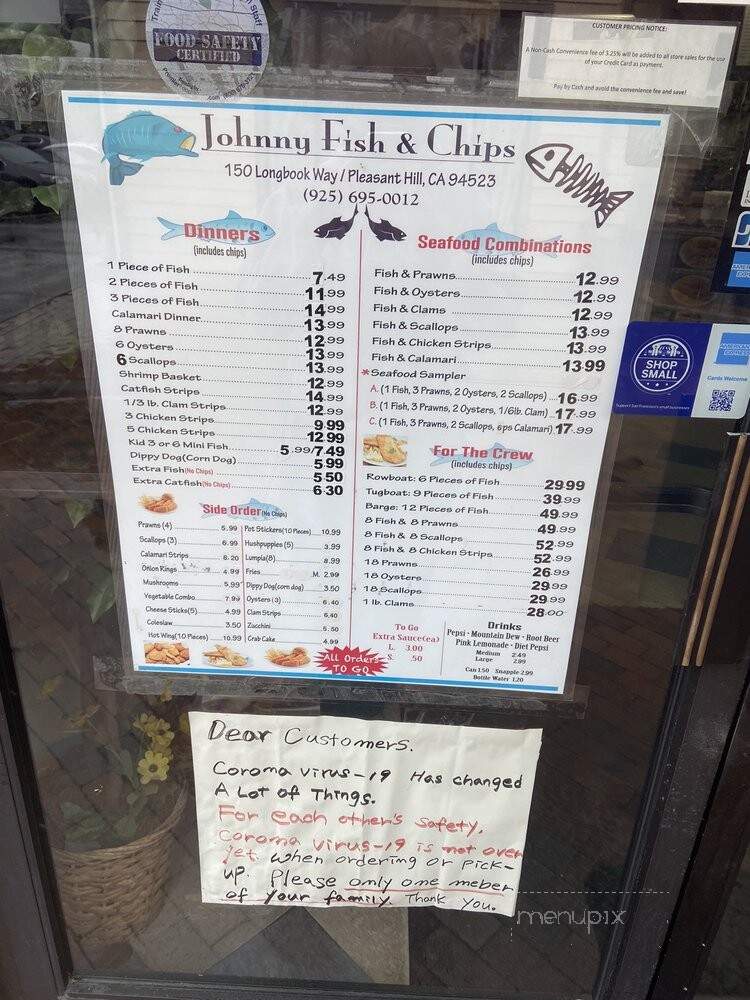 FOOD SAFETY
CERTIFIED
CUSTOMER PRICING NOTICE:
A Non-Cash Convenience fee of 3.25% will be added to all store sales for the use
of your Credit Card as payment.
Pay by Cash and avoid the convenience fee and save!
Johnny Fish & Chips
150 Longbook Way / Pleasant Hill, CA 94523
(925) 695-0012
Dinners
(includes chips)
1 Piece of Fish 7.49
2 Pieces of Fish 11.99
3 Pieces of Fish 14.99
Calamari Dinner 13.99
8 Prawns 12.99
6 Oysters 13.99
6 Scallops 13.99
Shrimp Basket 12.99
Catfish Strips 14.99
1/3 lb. Clam Strips 12.99
3 Chicken Strips 9.99
5 Chicken Strips 12.99
Kid 3 or 6 Mini Fish 5.99/7.49
Dippy Dog(Corn Dog) 5.99
Extra Fish(No Chips) 5.50
Extra Catfish(No Chips) 6.30
Side Order(No Chips)
Prawns (4) 5.99
Scallops (3) 6.99
Calamari Strips 8.20
Onion Rings 4.99
Mushrooms 5.99
Vegetable Combo 7.99
Cheese Sticks(5) 4.99
Coleslaw 3.50
Hot Wing(10 Pieces) 10.99
Pot Stickers(10 Pieces) 10.99
Hushpuppies (5) 3.99
Lumpia(8) 8.99
Fries M. 2.99
Dippy Dog(corn dog) 3.50
Oysters (3) 6.40
Clam Strips 6.40
Zucchini 5.50
Crab Cake 4.99
All Orders
TO GO
Seafood Combinations
(includes chips)
Fish & Prawns 12.99
Fish & Oysters 12.99
Fish & Clams 12.99
Fish & Scallops 13.99
Fish & Chicken Strips 13.99
Fish & Calamari 13.99
*Seafood Sampler
A. (1 Fish, 3 Prawns, 2 Oysters, 2 Scallops) 16.99
B. (1 Fish, 3 Prawns, 2 Oysters, 1/6lb. Clam) 17.99
C. (1 Fish, 3 Prawns, 2 Scallops, 6ps Calamari) 17.99
For The Crew
(includes chips)
Rowboat: 6 Pieces of Fish 29.99
Tugboat: 9 Pieces of Fish 39.99
Barge: 12 Pieces of Fish 49.99
8 Fish & 8 Prawns 49.99
8 Fish & 8 Scallops 52.99
8 Fish & 8 Chicken Strips 52.99
18 Prawns 26.99
18 Oysters 29.99
18 Scallops 29.99
1 lb. Clams 28.00
To Go
Extra Sauce(ea)
L. 3.00
S. .50
Drinks
Pepsi · Mountain Dew · Root Beer
Pink Lemonade · Diet Pepsi
Medium 2.49
Large 2.89
Can 1.50 Snapple 2.99
Bottle Water 1.20
SHOP
SMALL
AMERICAN
EXPRESS
Cards Welcome
Dear Customers.
Coroma virus-19 Has changed
A Lot of Things.
For each other's safety.
Coroma virus-19 is not over
yet. when ordering or pick-
up. Please only one meber
of your family. Thank you.
menupix